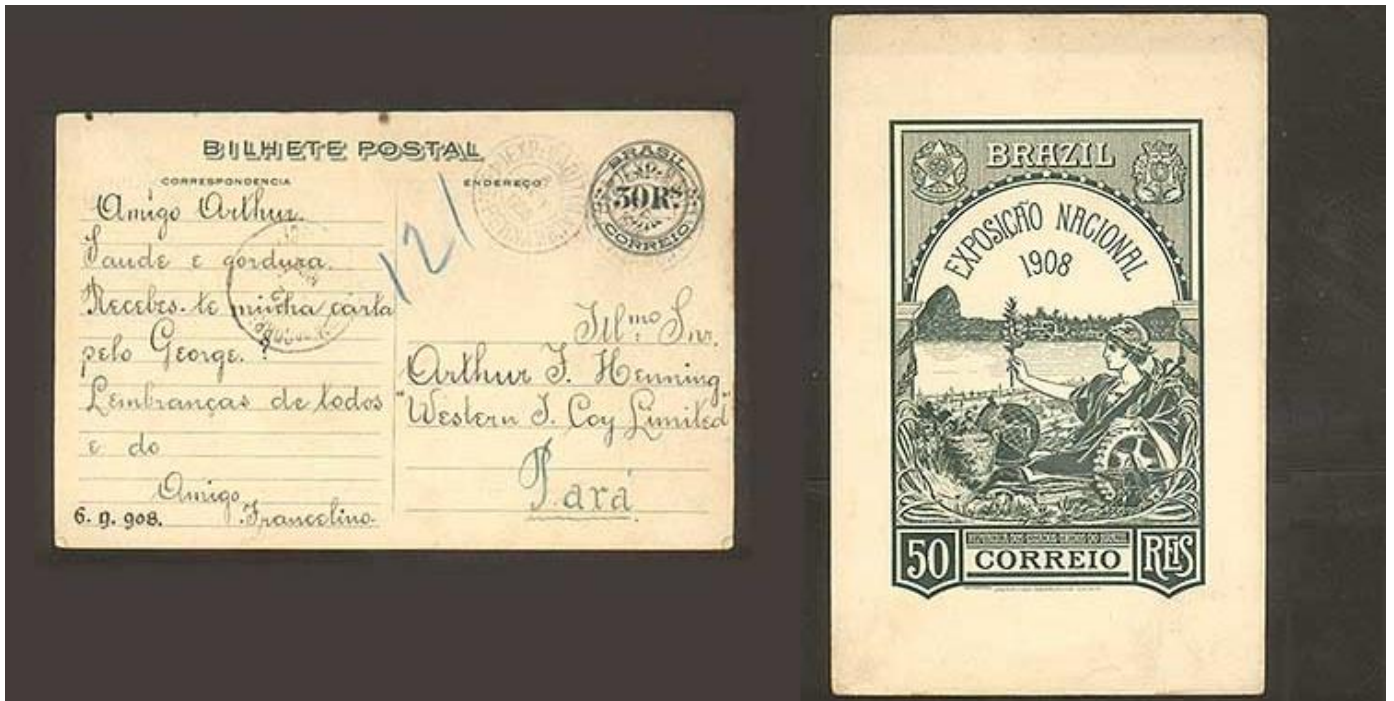 BILHETE POSTAL
CORRESPONDENCIA
ENDEREÇO
BRASIL
50 Rs
CORREIO
121
Amigo Arthur.
Saude e gordura.
Recebes-te minha carta
pelo George. ?
Lembranças de todos
e do
Amigo
Francelino.
6. 9. 908.
Illmo Snr.
Arthur J. Henning
"Western T. Coy Limited"
Pará
BRAZIL
EXPOSIÇÃO NACIONAL
1908
50
REPUBLICA DOS ESTADOS UNIDOS DO BRAZIL
CORREIO
REIS